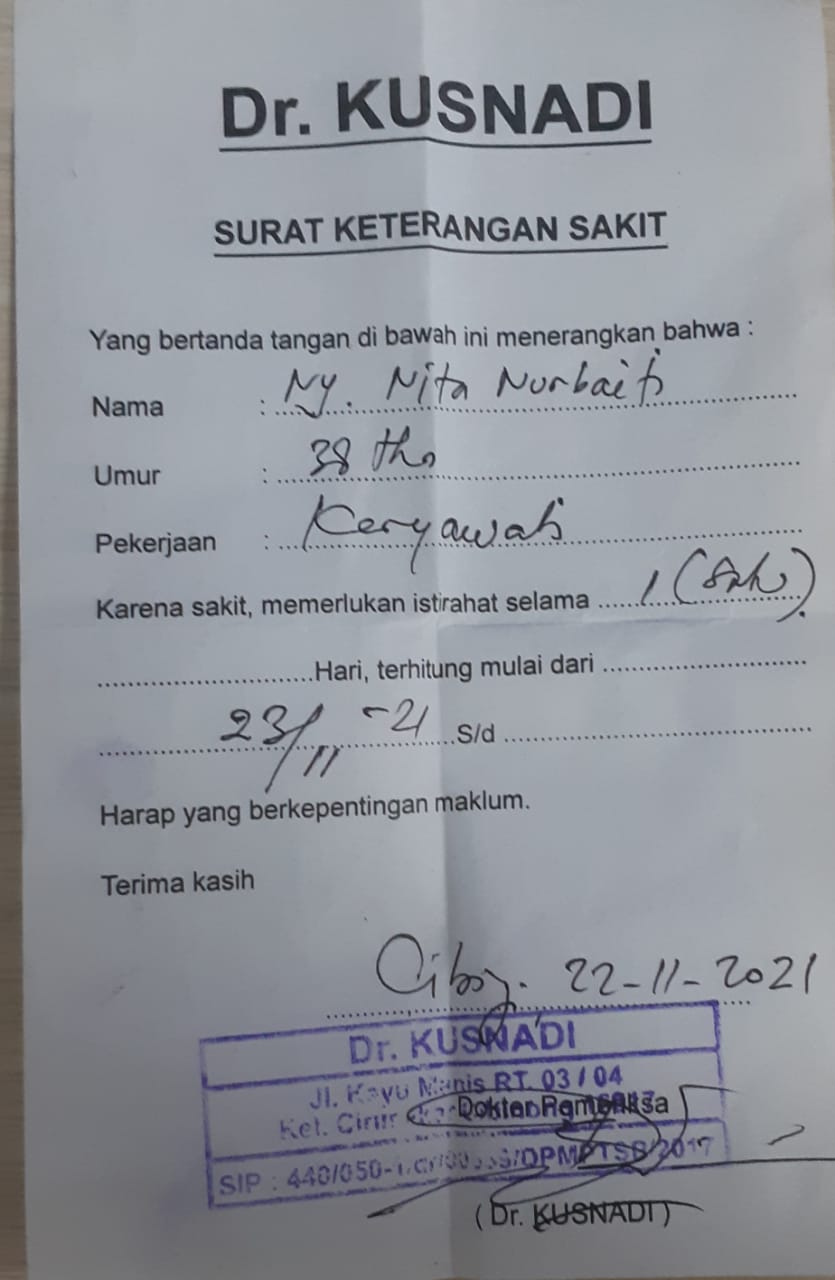 Dr. KUSNADI
SURAT KETERANGAN SAKIT
Yang bertanda tangan di bawah ini menerangkan bahwa :
Nama : Ny. Nita Nurbaiti
Umur : 38 thn
Pekerjaan : Karyawati
Karena sakit, memerlukan istirahat selama 1 (satu)
Hari, terhitung mulai dari
23/11 -21 S/d
Harap yang berkepentingan maklum.
Terima kasih
22-11-2021
Dr. KUSNADI
Jl. Kayu Manis RT. 03 / 04
Kel.
Dokter Pemeriksa
SIP : 440/050-
/DPMPTSP/2017
(Dr. KUSNADI)